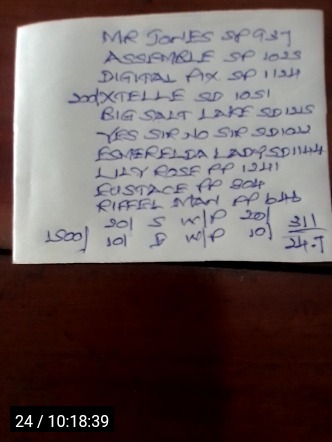 MR JONES SP 937
ASSEMBLE SP 1023
DIGITAL PIX SP 1124
200/XTELLE SD 1051
BIG SALT LAKE SD 1215
YES SIR NO SIR SD 1024
ESMERELDA LADY SD 1144
LILY ROSE PP 1241
EUSTACE PP 804
RIFFEL MAN PP 643
20/ S W/P 20/ 311
1500/ 10/ D W/P 10/ 247
24 / 10:18:39